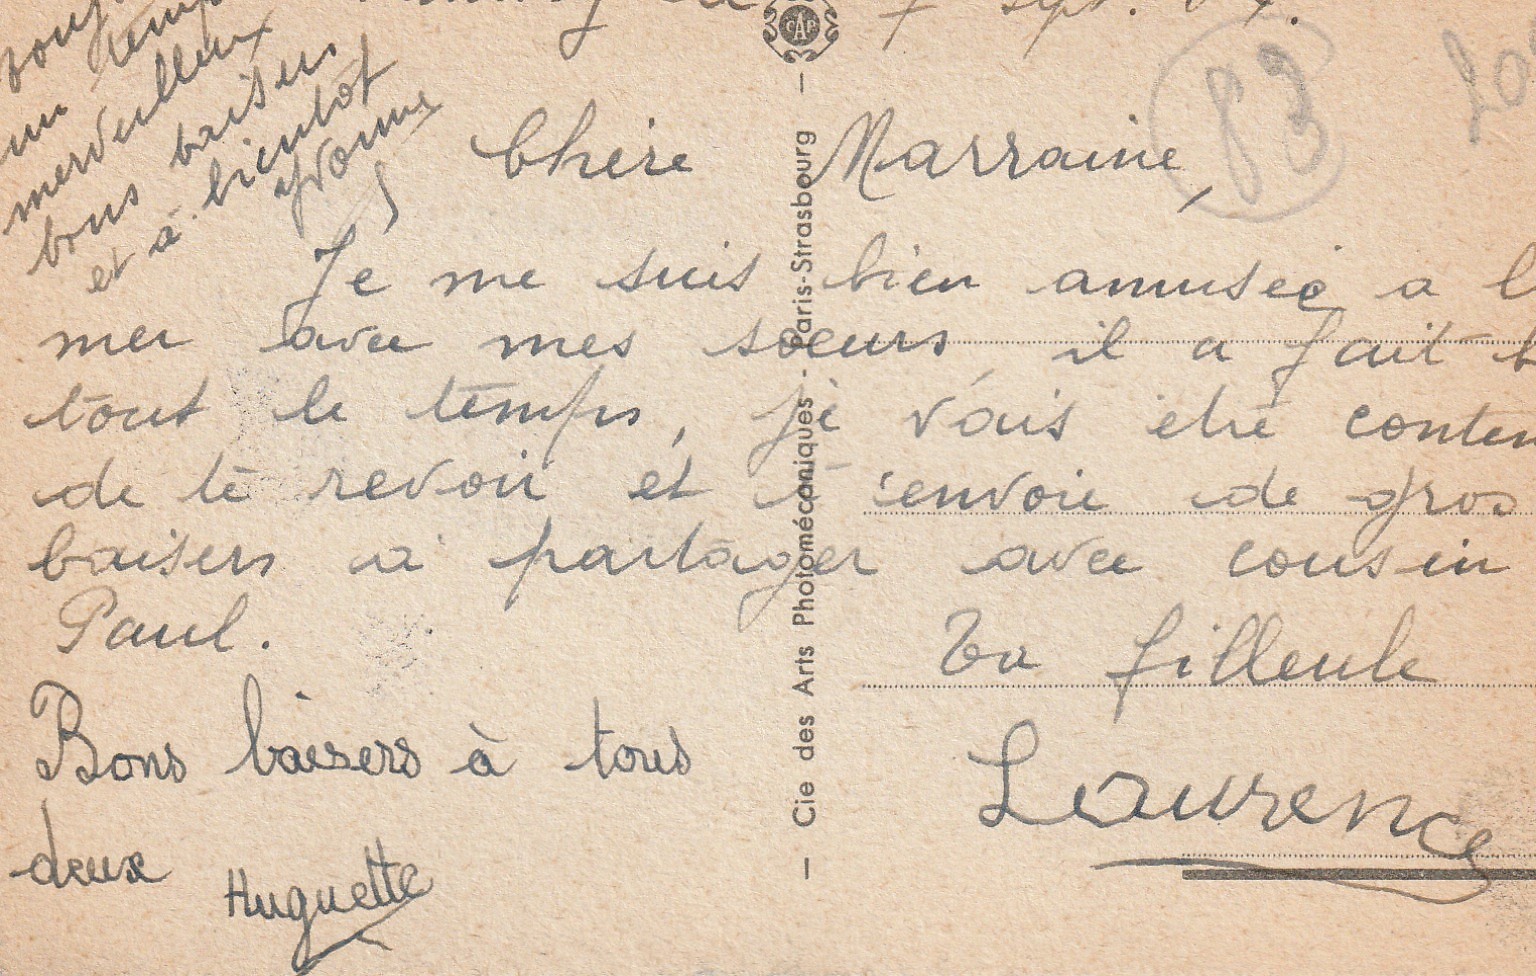 7 sept.
temps
un
merveilleux
bons baisers
et à bientôt
Yvonne
CAP
83
Chère Marraine,
Je me suis bien amusée a l
mer avec mes soeurs, il a fait b
tout le temps, je vais être conten
de te revoir et t'envoie de gros
baisers a partager avec cousin
Paul.
Ta filleule
Laurence
Bons baisers à tous
deux
Huguette
Cie des Arts Photomécaniques - Paris-Strasbourg